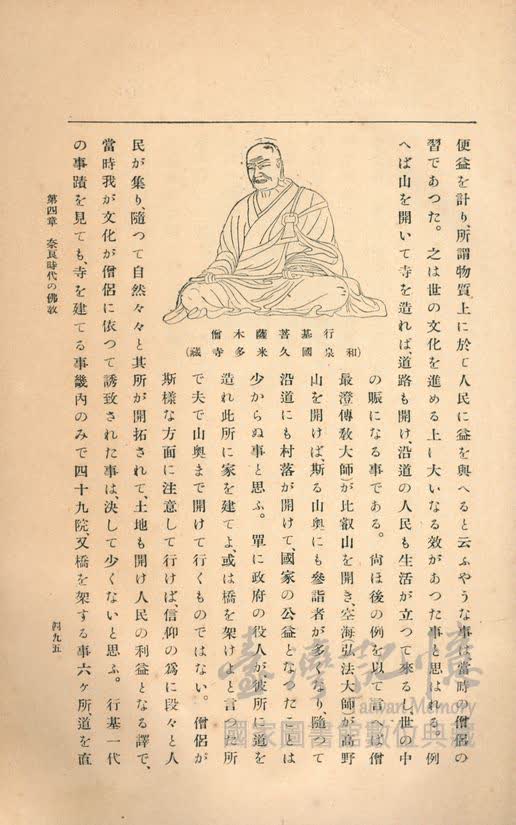 便益を計り、所謂物質上に於て人民に益を與へると云ふやうな事は當時の僧侶の
習であつた。之は世の文化を進める上に大いなる效があつた事と思はれる。例
へば山を開いて寺を造れば、道路も開け、沿道の人民も生活が立つて來るし、世の中
の賑になる事である。尙ほ後の例を以て言へば僧
最澄傳敎大師)が比叡山を開き、空海弘法大師が高野
山を開けば、斯る山奧にも參詣者が多くなり、隨つて
沿道にも村落が開けて、國家の公益となつたことは
少からぬ事と思ふ。單に政府の役人が彼所に道を
造れ此所に家を建てよ、或は橋を架けよと言つた所
で夫で山奧まで開けて行くものではない。僧侶が
斯樣な方面に注意して行けば、信仰の爲に段々と人
行基菩薩木像
(和泉國久米多寺藏)
民が集り、隨つて自然々々と其所が開拓されて、土地も開け人民の利益となる譯で、
當時我が文化が僧侶に依つて誘致された事は、決して少くないと思ふ。行基一代
の事蹟を見ても、寺を建てる事畿內のみで四十九院、又橋を架する事六ケ所道を直
第四章 奈良時代の佛敎
四九五
臺灣記憶
Taiwan Memory
國家圖書館數位典藏